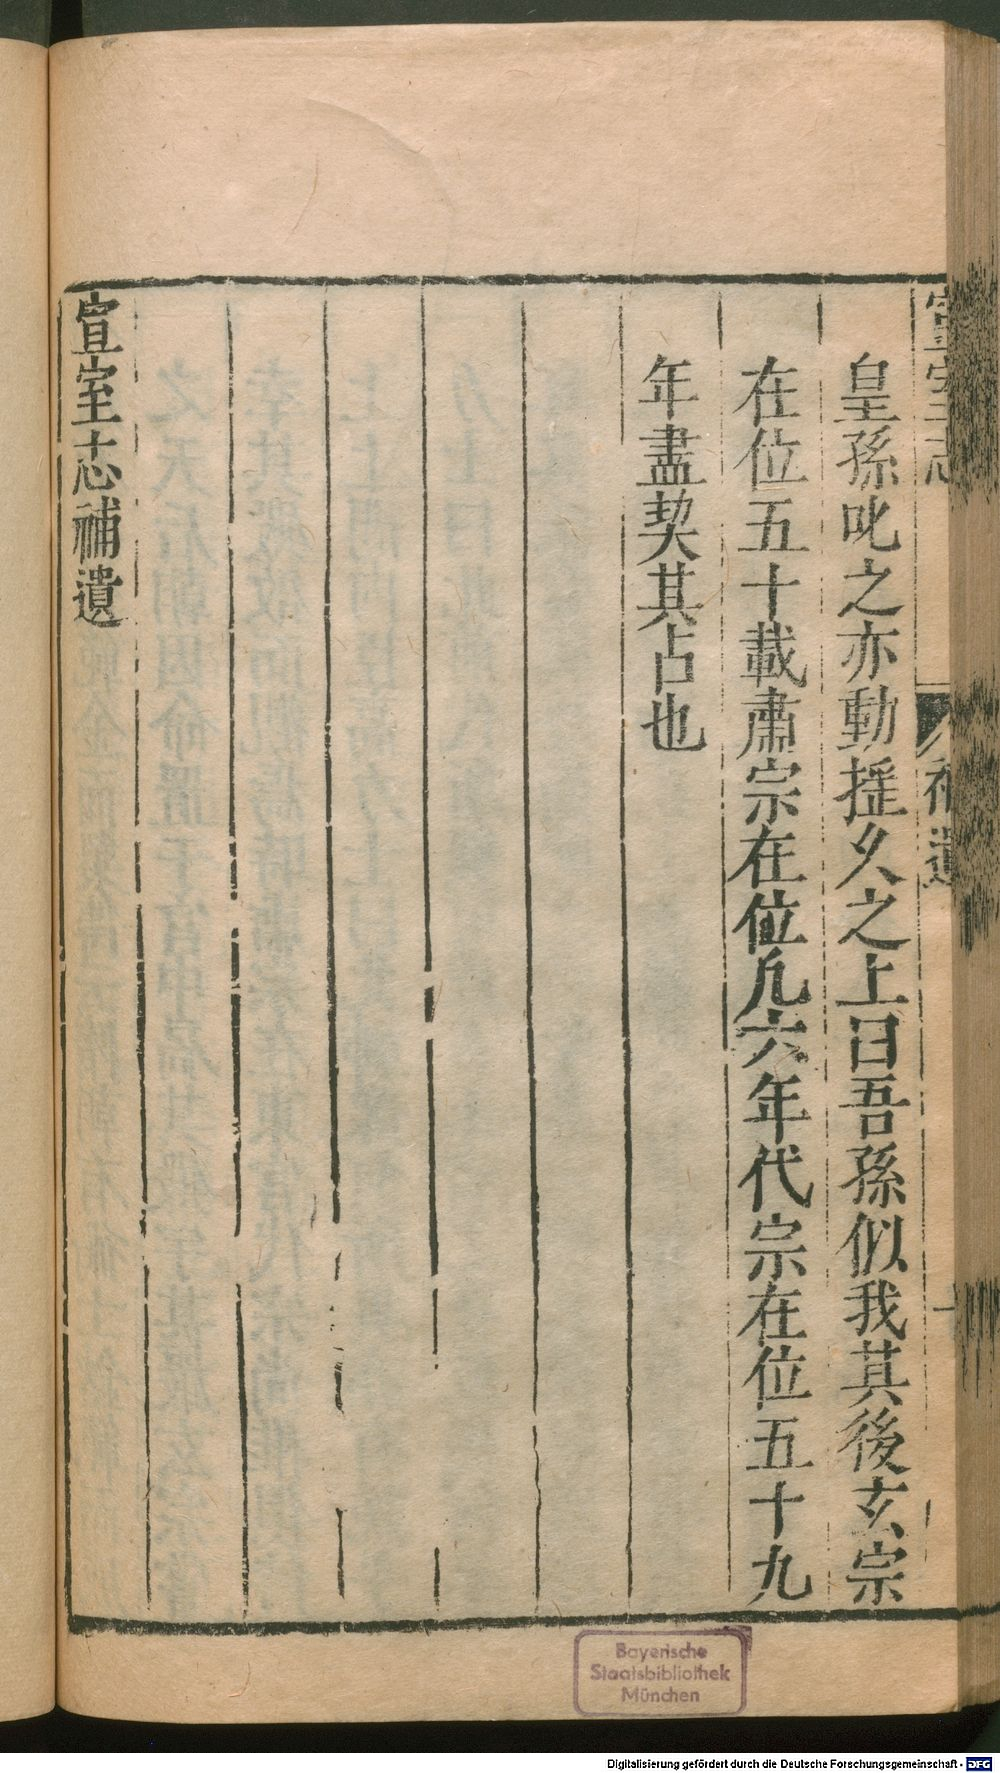 宣室志
補遺
皇孫叱之亦動揺乆之上曰吾孫似我其後玄宗
在位五十載肅宗在位凡六年代宗在位五十九
年盡契其占也
宣室志補遺
Bayerische
Staatsbibliothek
München
Digitalisierung gefördert durch die Deutsche Forschungsgemeinschaft - DFG